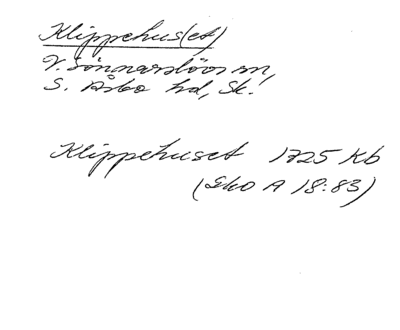 Klippehus(et)
V. Sönnarslövs sn,
S. Åsbo hd, Sk.
Klippehuset 1725 Kb
(GbO A 18:83)